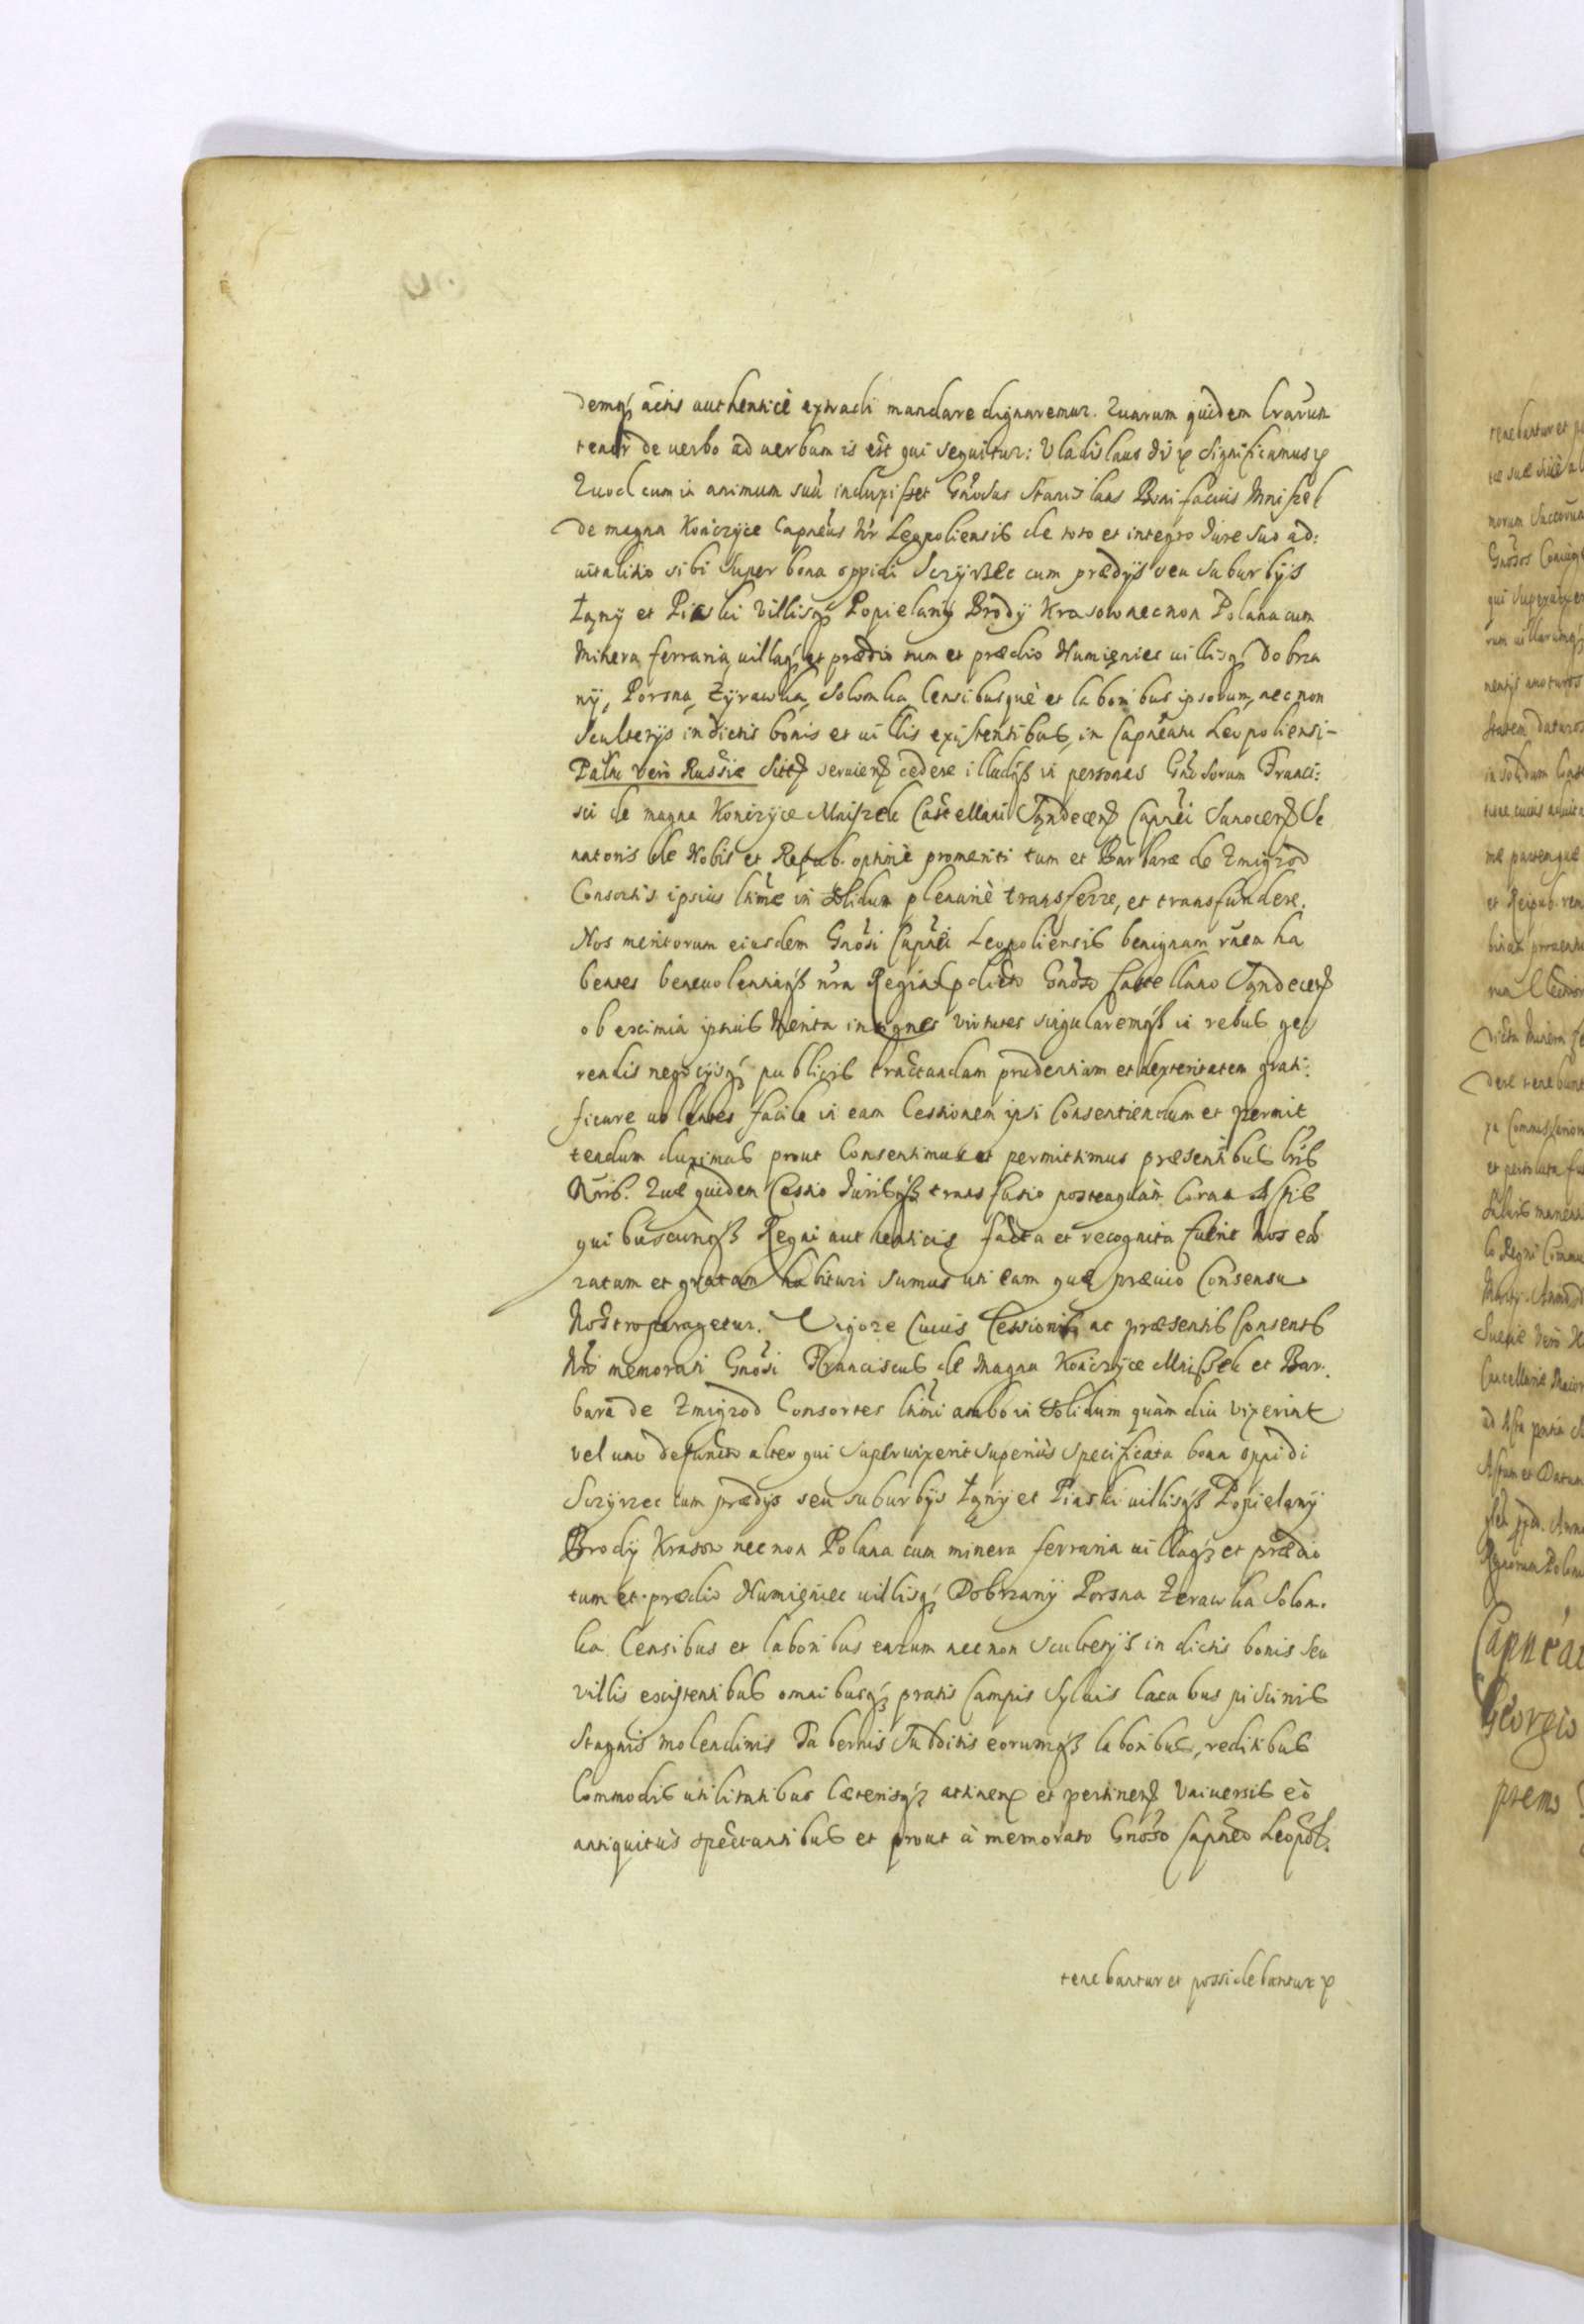 demq́ʒ actis authenticè extradi mandare dignaremur. Quarum quidem lrarum
tenor de uerbo ad uerbum is est qui sequitur: Vladislaus
Quod cum in animum suū induxisset Gnosus Stanislaus Bonifacius Mniszek
de magna Kończyce Capneus Nr Leopoliensis de toto et integro Iure suo ad:
uitalitio sibi super bona oppidi Sczyrzec cum prædijs seu suburbijs
Łąny et Piaski Villisq́ʒ Popielany Brody Krasow necnon Polana cum
Minera ferraria uillaq́ʒ et prædio tum et prædio Humieniec uillisq́ʒ Dobrza
ny, Porsna, Zyrawka, Solonka Censibusquè et laboribus ipsorum, necnon
Scultetijs in dictis bonis et uillis existentibus, in Capneatu Leopoliensi-
Palnu verò Russiæ cedere illudqʒ in personas Gnosorum Franci:
sci de magna Konczyce Mniszek Castellani Sąndecenʒ Capnei Sanocenʒ Se
natoris de Nobis et Repub. optimè promeriti tum et Barbaræ de Zmigrod
Consortis ipsius ltimæ in solidum plenariè transferre, et transfundere.
Nos meritorum eiusdem Gnosi Capnei Leopoliensis benignam rnem ha
bentes beneuolentiaqʒ nra Regia pdicto Gnoso Castellano Sąndecenʒ
ob eximia ipsius Merita insignes virtutes singularemqʒ in rebus ge
rendis negocijsq́ʒ publicis tractandam prudentiam et dexteritatem grati:
ficare uolentes facile in eam Cessionem ipsi Consentiendum et permit
tendum duximus prout Consentimus et permittimus præsentibus lris
Nris. Quæ quidem Cessio Iurisqʒ transfusio posteaquàm Coram Actis
quibuscunqʒ Regni authenticis facta et recognita fuerit Nos eā
ratam et gratam habituri sumus uti eam quæ præuio Consensu
Nostro peragetur. Vigore Cuius Cessionis, ac præsentis Consensus
Nri memorati Gnosi Franciscus de Magna Kończyce Mniszek et Bar.
bara de Zmigrod Consortes ltimi ambo in solidum quàm diu vixerint
vel uno defuncto alter qui superuixerit superiùs specificata bona oppidi
Sczyrzec cum prædijs seu suburbijs Łąny et Piaski uillisqʒ Popielany
Brody Krasow necnon Polana cum minera ferraria uillaq́ʒ et prædio
tum et prædio Humieniec uillisq́ʒ Dobrzany Porsna Zerawka Solon.
ka Censibus et laboribus earum necnon Scultetijs in dictis bonis seu
villis existentibus omnibusq́ʒ pratis Campis Syluis lacubus piscinis
Stagnis molendinis Tabernis Subditis eorumqʒ laboribus, reditibus
Commodis utilitatibus Cæterisq́ʒ attinenʒ et pertinenʒ Vniuersis eò
antiquitùs spectantibus et prout à memorato Gnoso Capneo Leopolʒ
tenebantur et possidebantur